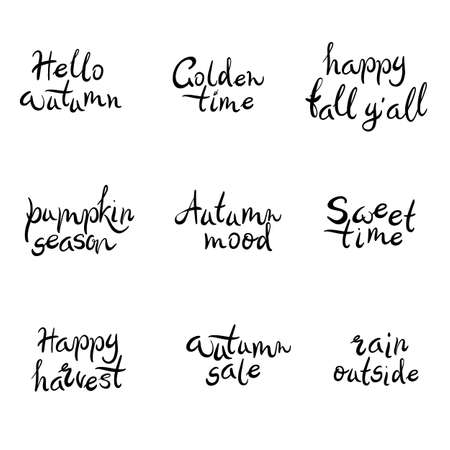 Hello
autumn
Golden
time
happy
fall y'all
pumpkin
season
Autumn
mood
Sweet
time
Happy
harvest
autumn
sale
rain
outside